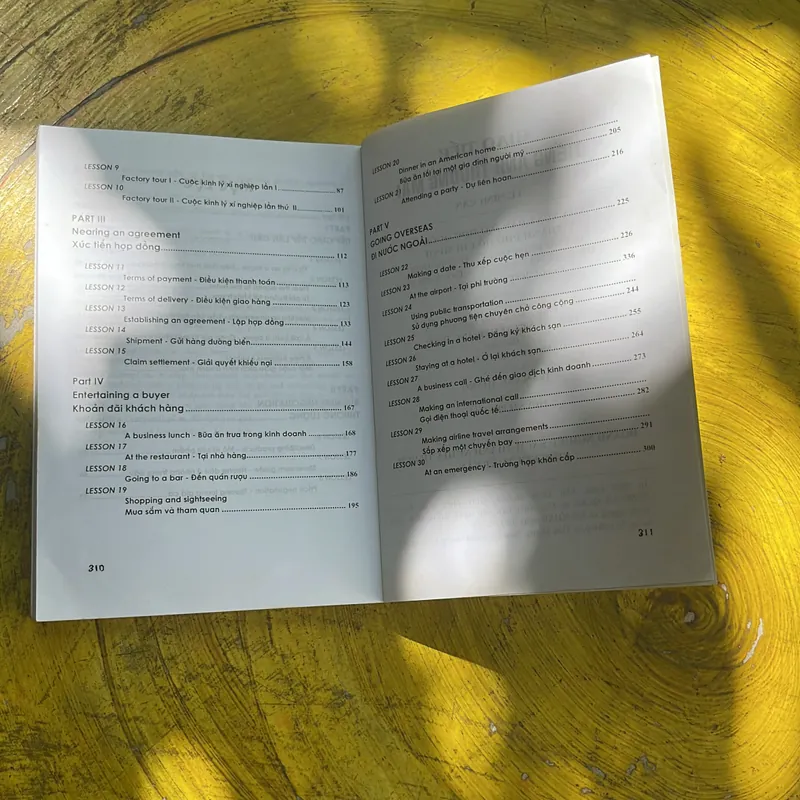 LESSON 9
Factory tour I - Cuộc kinh lý xí nghiệp lần I 87
LESSON 10
Factory tour II - Cuộc kinh lý xí nghiệp lần thứ II 101
PART III
Nearing an agreement
Xúc tiến hợp đồng 112
LESSON 11
Terms of payment - Điều kiện thanh toán 113
LESSON 12
Terms of delivery - Điều kiện giao hàng 123
LESSON 13
Establishing an agreement - Lập hợp đồng 133
LESSON 14
Shipment - Gửi hàng đường biển 144
LESSON 15
Claim settlement - Giải quyết khiếu nại 158
Part IV
Entertaining a buyer
Khoản đãi khách hàng 167
LESSON 16
A business lunch - Bữa ăn trưa trong kinh doanh 168
LESSON 17
At the restaurant - Tại nhà hàng 177
LESSON 18
Going to a bar - Đến quán rượu 186
LESSON 19
Shopping and sightseeing
Mua sắm và tham quan 195
310
LESSON 20
Dinner in an American home
Bữa ăn tối tại một gia đình người mỹ 205
LESSON 21
Attending a party - Dự liên hoan 216
PART V
GOING OVERSEAS
ĐI NƯỚC NGOÀI 225
LESSON 22
Making a date - Thu xếp cuộc hẹn 226
LESSON 23
At the airport - Tại phi trường 336
LESSON 24
Using public transportation
Sử dụng phương tiện chuyên chở công cộng 244
LESSON 25
Checking in a hotel - Đăng ký khách sạn 255
LESSON 26
Staying at a hotel - Ở lại khách sạn 264
LESSON 27
A business call - Ghé đến giao dịch kinh doanh 273
LESSON 28
Making an international call
Gọi điện thoại quốc tế 282
LESSON 29
Making airline travel arrangements
Sắp xếp một chuyến bay 291
LESSON 30
At an emergency - Trường hợp khẩn cấp 300
311